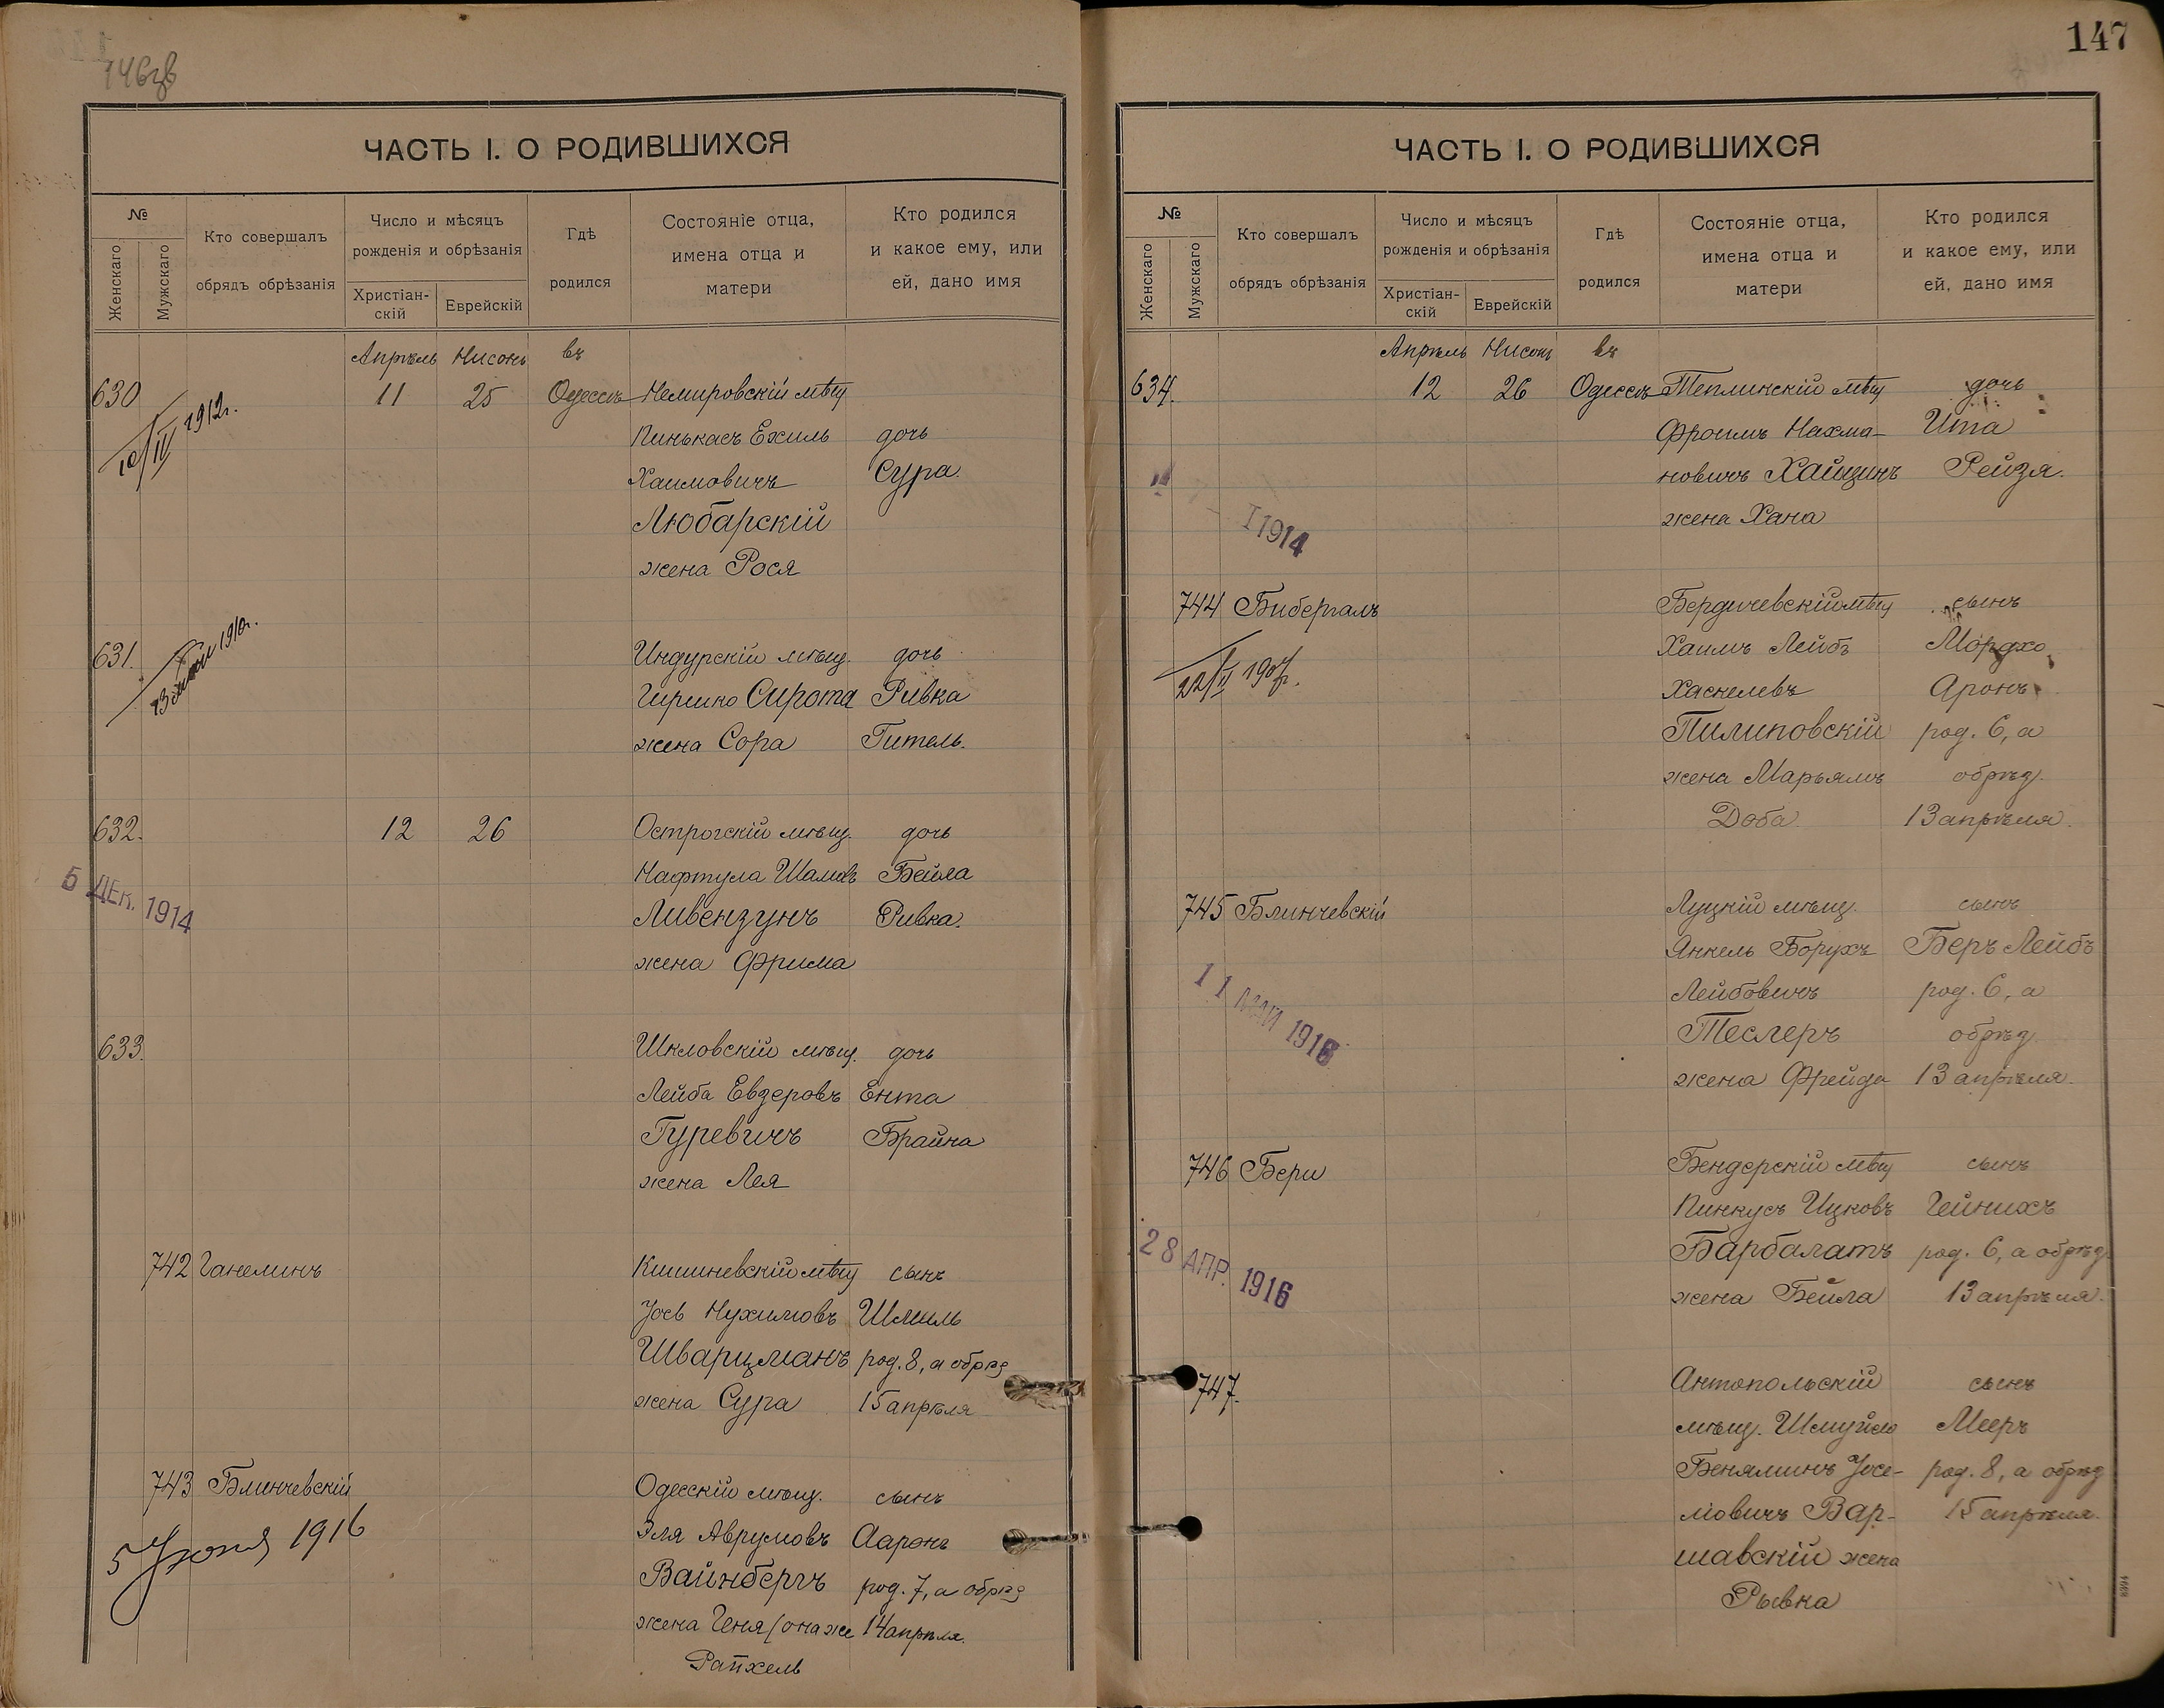 146зв
ЧАСТЬ I. О РОДИВШИХСЯ
№
Женскаго
Мужскаго
Кто совершалъ
обрядъ обрѣзанія
Число и мѣсяцъ
рожденія и обрѣзанія
Христіан-
скій
Еврейскій
Гдѣ
родился
Состояніе отца,
имена отца и
матери
Кто родился
и какое ему, или
ей, дано имя
Апрѣль Нисонъ въ
630 11 25 Одессѣ Немировскій мѣщ
1912г.
Пинькасъ Ехиль дочь
Хаимовичъ Сура.
Любарскій
жена Рося
631. Индурскій мѣщ. дочь
1910г.
Гершко Сирота Ривка
жена Сора Гитель.
632. 12 26 Острогскій мѣщ. дочь
Нафтула Шамовъ Бейла
5 ДЕК. 1914
Ливензунъ Ривка.
жена Фрима
633. Шкловскій мѣщ. дочь
Лейба Евзеровъ Ента
Гуревичъ Брайна
жена Лея
742 Ганелинъ Кишиневскій мѣщ сынъ
Іось Нухимовъ Шмиль
Шварцманъ род. 8, а обрѣз
жена Сура 15 апрѣля
743 Блинчевскій Одесскій мѣщ. сынъ
5 Іюня 1916
Эля Аврумовъ Ааронъ
Вайнбергъ род. 7, а обрѣз
жена Геня (она же 14 апрѣля.
Рапхель
147
ЧАСТЬ I. О РОДИВШИХСЯ
№
Женскаго
Мужскаго
Кто совершалъ
обрядъ обрѣзанія
Число и мѣсяцъ
рожденія и обрѣзанія
Христіан-
скій
Еврейскій
Гдѣ
родился
Состояніе отца,
имена отца и
матери
Кто родился
и какое ему, или
ей, дано имя
Апрѣль Нисонъ въ
634. 12 26 Одессѣ Теплинскій мѣщ дочь
Фроимъ Нахма- Ита
новичъ Хайцинъ Рейзя.
жена Хана
I 1914
744 Бибергалъ Бердичевскій мѣщ сынъ
Хаимъ Лейбъ Мордхо
Хаскелевъ Аронъ
Пилиповскій род. 6, а
жена Марьямъ обрѣз.
Доба 13 апрѣля.
745 Блинчевскій Луцкій мѣщ. сынъ
Янкель Борухъ Беръ Лейбъ
11 МАЙ 1916
Лейбовичъ род. 6, а
Теслеръ обрѣз
жена Фрейда 13 апрѣля.
746 Бери Бендерскій мѣщ сынъ
Пинкусъ Ицковъ Гейнихъ
28 АПР. 1916
Барбалатъ род. 6, а обрѣз
жена Бейла 13 апрѣля.
747. Антопольскій сынъ
мѣщ. Шмуйло Мееръ
Беняминъ Іосе- род. 8, а обрѣз
мовичъ Вар- 15 апрѣля.
шавскій жена
Рывка